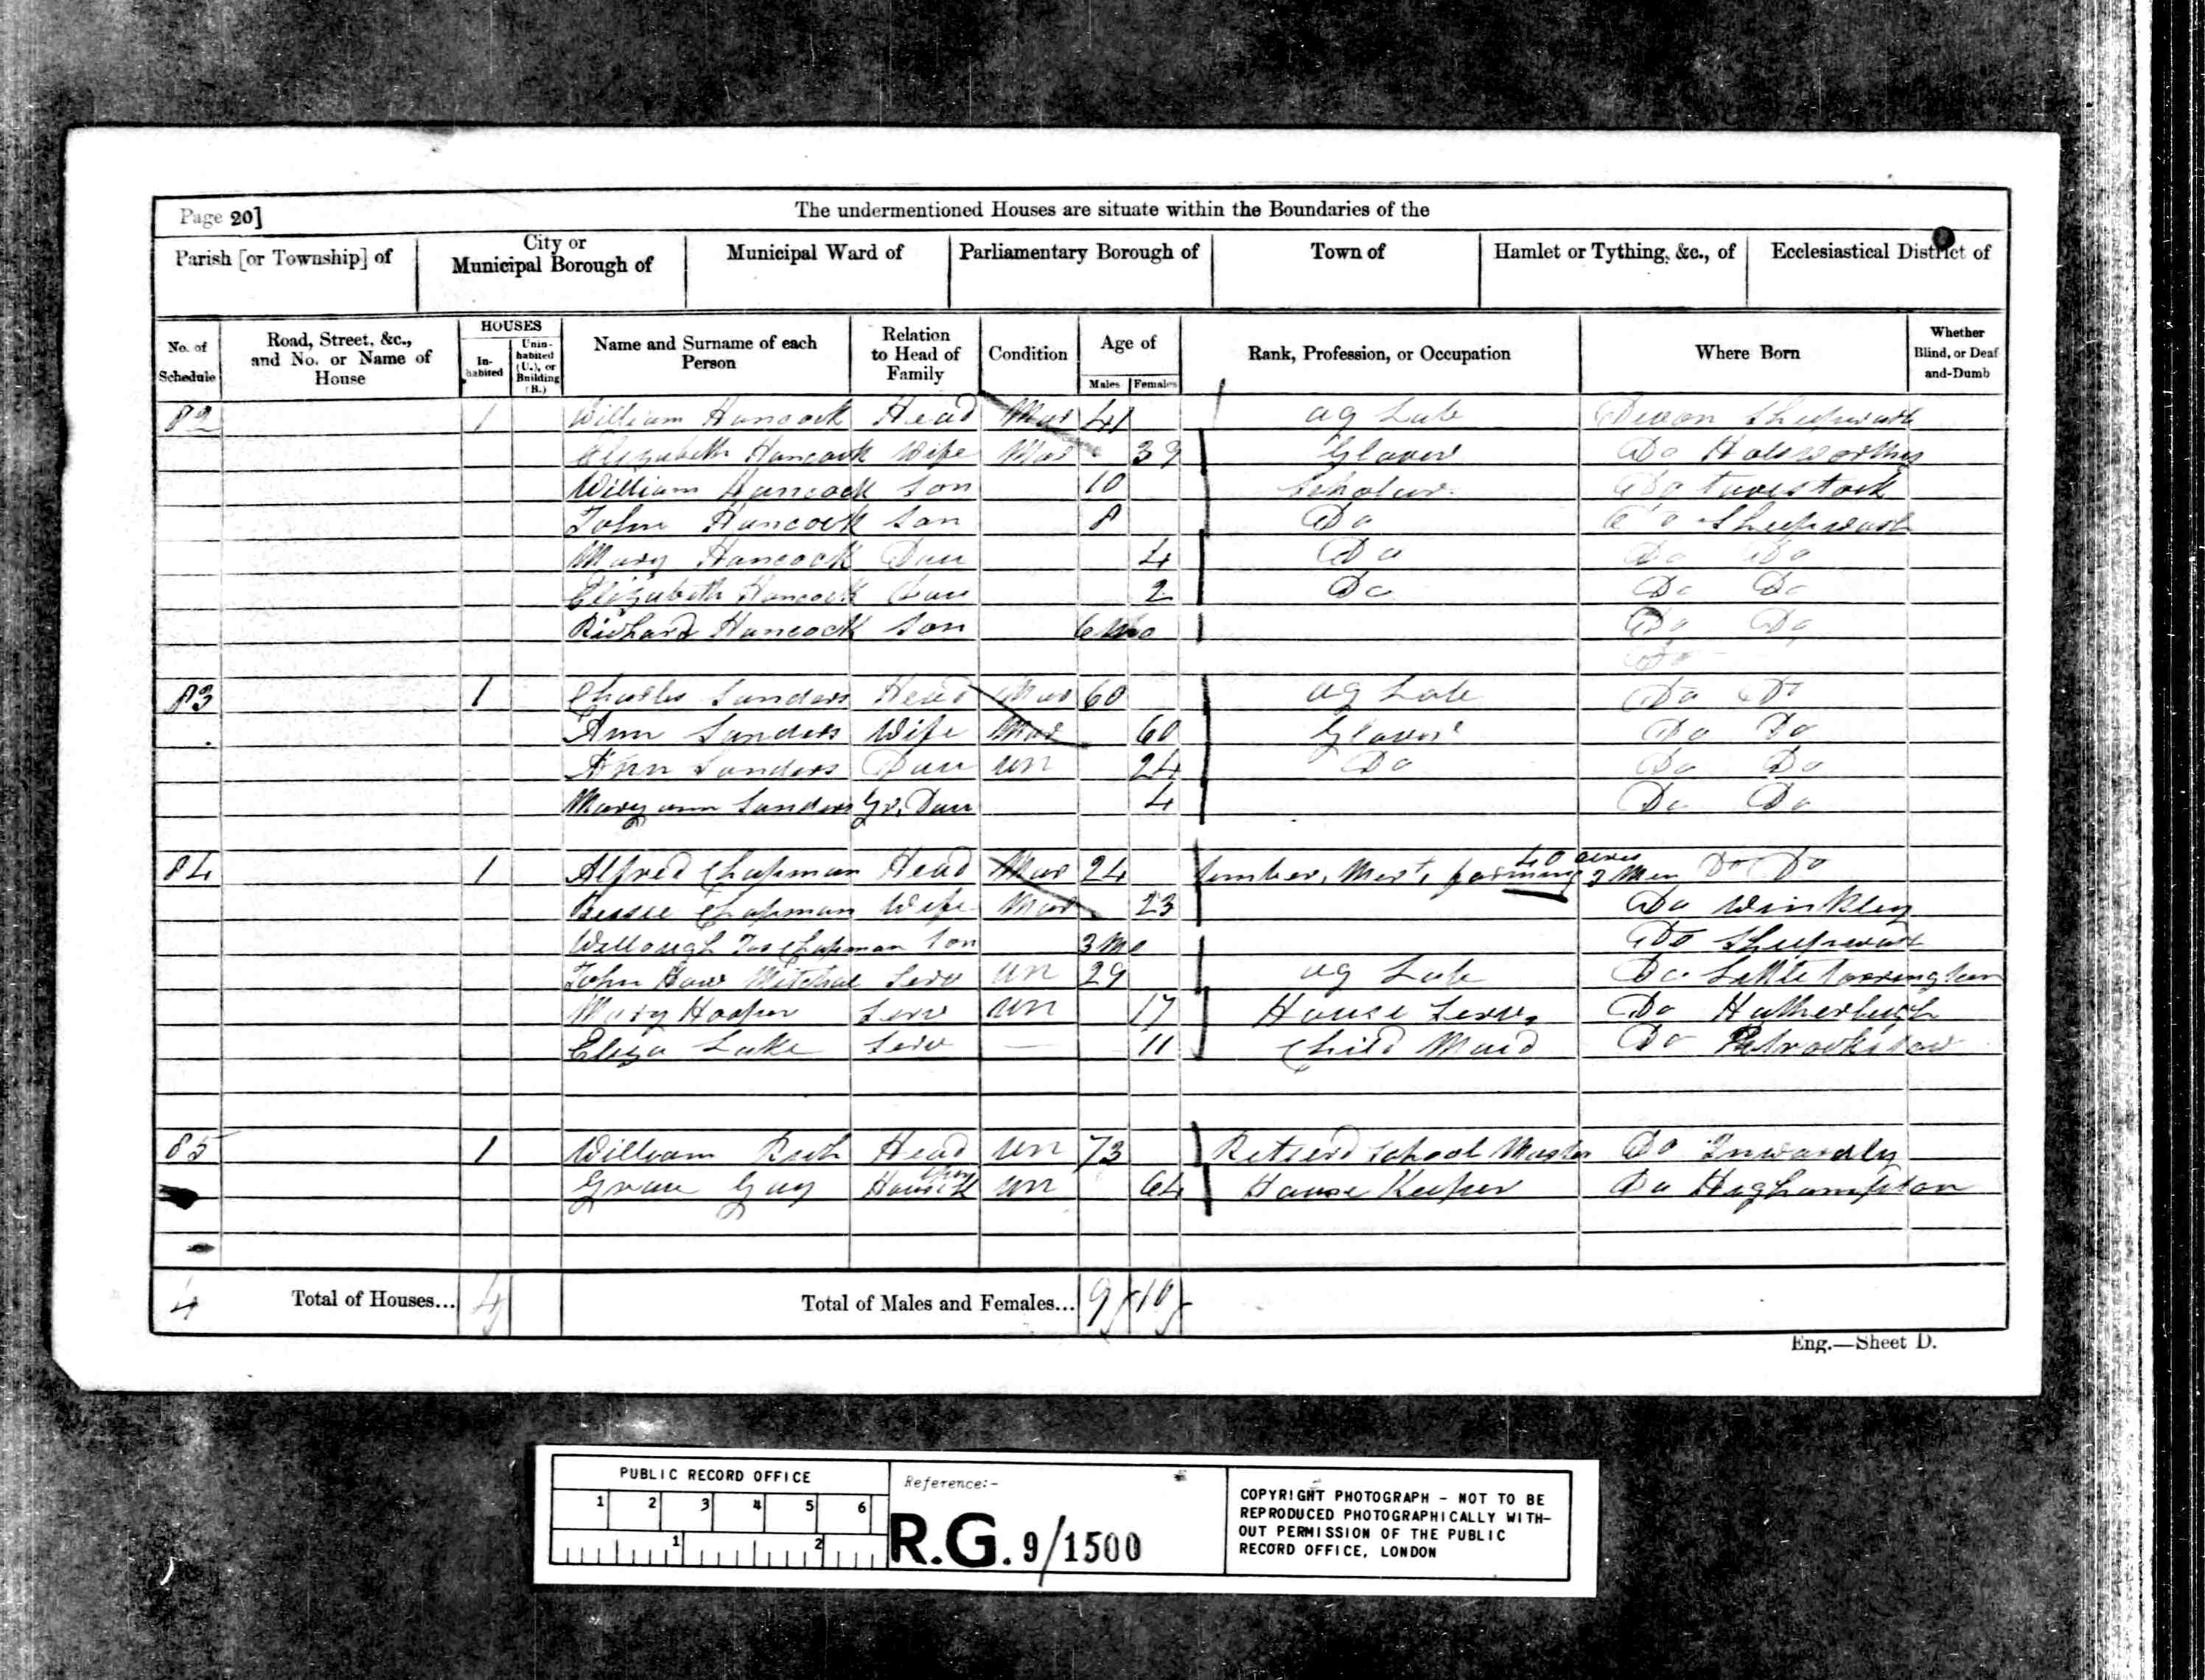 Page 20]
The undermentioned Houses are situate within the Boundaries of the
Parish [or Township] of
City or Municipal Borough of
Municipal Ward of
Parliamentary Borough of
Town of
Hamlet or Tything, &c., of
Ecclesiastical District of
No. of Schedule
Road, Street, &c., and No. or Name of House
HOUSES
In-habited
Unin-habited (U.), or Building (B.)
Name and Surname of each Person
Relation to Head of Family
Condition
Age of
Males
Females
Rank, Profession, or Occupation
Where Born
Whether Blind, or Deaf and-Dumb
82 1 William Hancock Head Mar 41 ag Lab Devon Sheepwash
Elizabeth Hancock Wife Mar 39 Glover Do Holsworthy
William Hancock Son 10 Scholar Do Tavistock
John Hancock Son 8 Do Do Sheepwash
Mary Hancock Dau 4 Do Do Do
Elizabeth Hancock Dau 2 Do Do Do
Richard Hancock Son 6 Mo Do Do
Do
83 1 Charles Sanders Head Mar 60 ag Lab Do Do
Ann Sanders Wife Mar 60 Glover Do Do
Ann Sanders Dau un 24 Do Do Do
Mary ann Sanders Gr. Dau 4 Do Do
84 1 Alfred Chapman Head Mar 24 Mert, farming 40 acres Men Do Do
Bessie Chapman Wife Mar 23 Do Winkley
Chapman Son 3 Mo Do Sheepwash
John Mitchal Serv un 29 ag Lab Do Little Torrington
Mary Hooper Serv un 17 House Serv. Do Hatherleigh
Eliza Luke Serv — 11 Child Maid Do
85 1 William Head un 73 School Master Do
Guy un 64 House Keeper Do Highampton
4 Total of Houses... 4 Total of Males and Females... 9 10
Eng.—Sheet D.
PUBLIC RECORD OFFICE
1 2 3 4 5 6
1 2
Reference:-
R.G. 9/1500
COPYRIGHT PHOTOGRAPH - NOT TO BE
REPRODUCED PHOTOGRAPHICALLY WITH-
OUT PERMISSION OF THE PUBLIC
RECORD OFFICE, LONDON